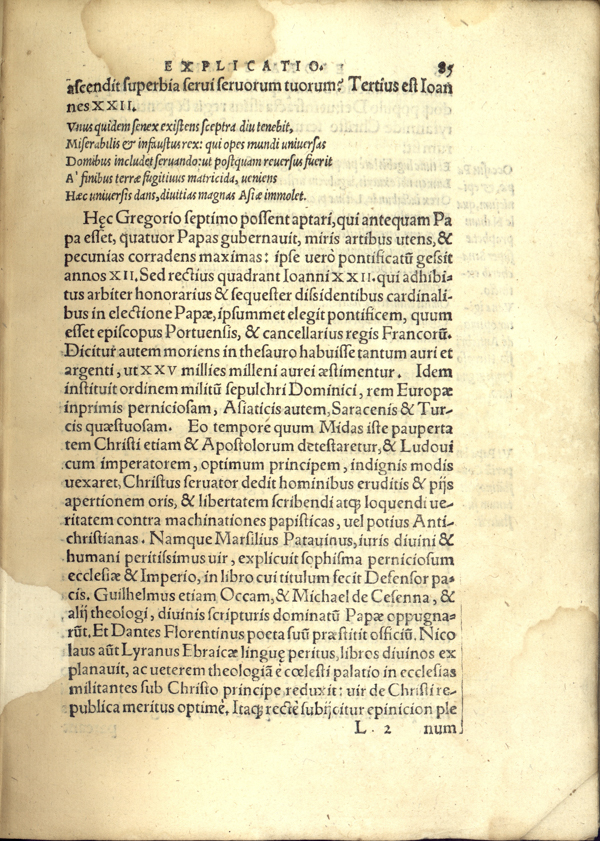 EXPLICATIO. 85
ascendit superbia serui seruorum tuorum? Tertius est Ioan
nes XXII.
Vnus quidem senex existens sceptra diu tenebit,
Miserabilis & infaustus rex: qui opes mundi uniuersas
Domibus includet seruando: ut postquam reuersus fuerit
A' finibus terræ fugitiuus matricida, ueniens
Hæc uniuersis dans, diuitias magnas Asiæ immolet.
Hęc Gregorio septimo possent aptari, qui antequam Pa
pa esset, quatuor Papas gubernauit, miris artibus utens, &
pecunias corradens maximas: ipse uerò pontificatũ gessit
annos XII. Sed rectius quadrant Ioanni XXII. qui adhibi-
tus arbiter honorarius & sequester dissidentibus cardinali-
bus in electione Papæ, ipsummet elegit pontificem, quum
esset episcopus Portuensis, & cancellarius regis Francorũ.
Dicitur autem moriens in thesauro habuisse tantum auri et
argenti, ut XXV millies milleni aurei æstimentur. Idem
instituit ordinem militũ sepulchri Dominici, rem Europæ
inprimis perniciosam, Asiaticis autem, Saracenis & Tur-
cis quæstuosam. Eo tempore quum Midas iste pauperta
tem Christi etiam & Apostolorum detestaretur, & Ludoui
cum imperatorem, optimum principem, indignis modis
uexaret, Christus seruator dedit hominibus eruditis & pijs
apertionem oris, & libertatem scribendi atq; loquendi ue-
ritatem contra machinationes papisticas, uel potius Anti-
christianas. Namque Marsilius Patauinus, iuris diuini &
humani peritissimus uir, explicuit sophisma perniciosum
ecclesiæ & Imperio, in libro cui titulum fecit Defensor pa-
cis. Guilhelmus etiam Occam, & Michael de Cesenna, &
alij theologi, diuinis scripturis dominatũ Papæ oppugna-
rũt. Et Dantes Florentinus poeta suũ præstitit officiũ. Nico
laus aũt Lyranus Ebraicæ linguę peritus, libros diuinos ex
planauit, ac ueterem theologiã è cœlesti palatio in ecclesias
militantes sub Christo principe reduxit: uir de Christi re-
publica meritus optimè. Itaq; rectè subijcitur epinicion ple
L 2 num